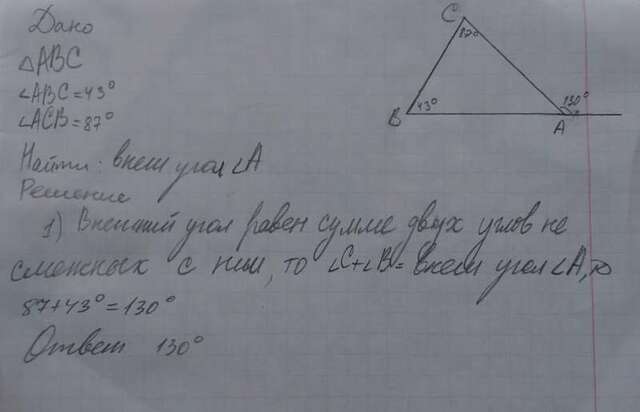 Дано
△ABC
∠ABC=43°
∠ACB=87°
Найти: внеш угол ∠A
Решение
1) Внешний угол равен сумме двух углов не
смежных с ним, то ∠C+∠B= внеш угол ∠A,
87+43°=130°
Ответ 130°
C
87°
B
43°
A
130°